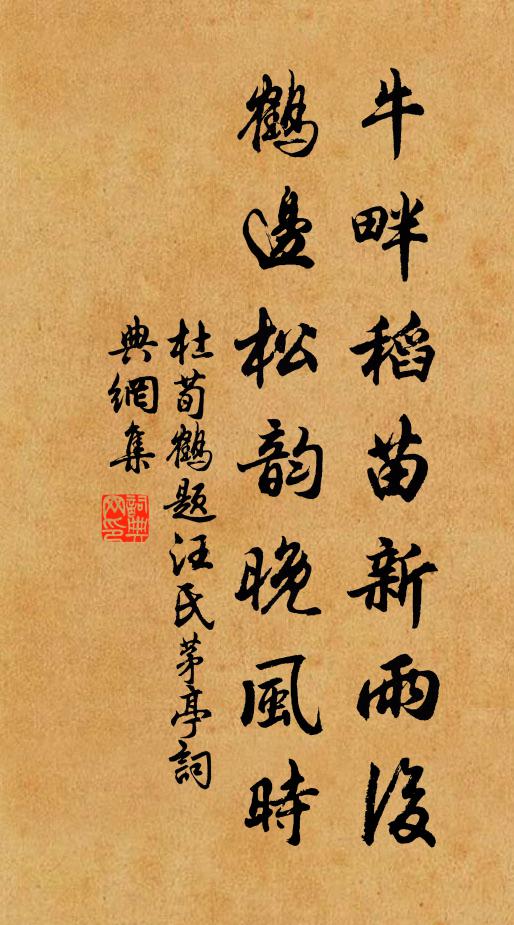 牛畔稻苗新雨後
鶴邊松韵晚風時
杜荀鶴題汪氏茅亭詞
典網集
詞典網印